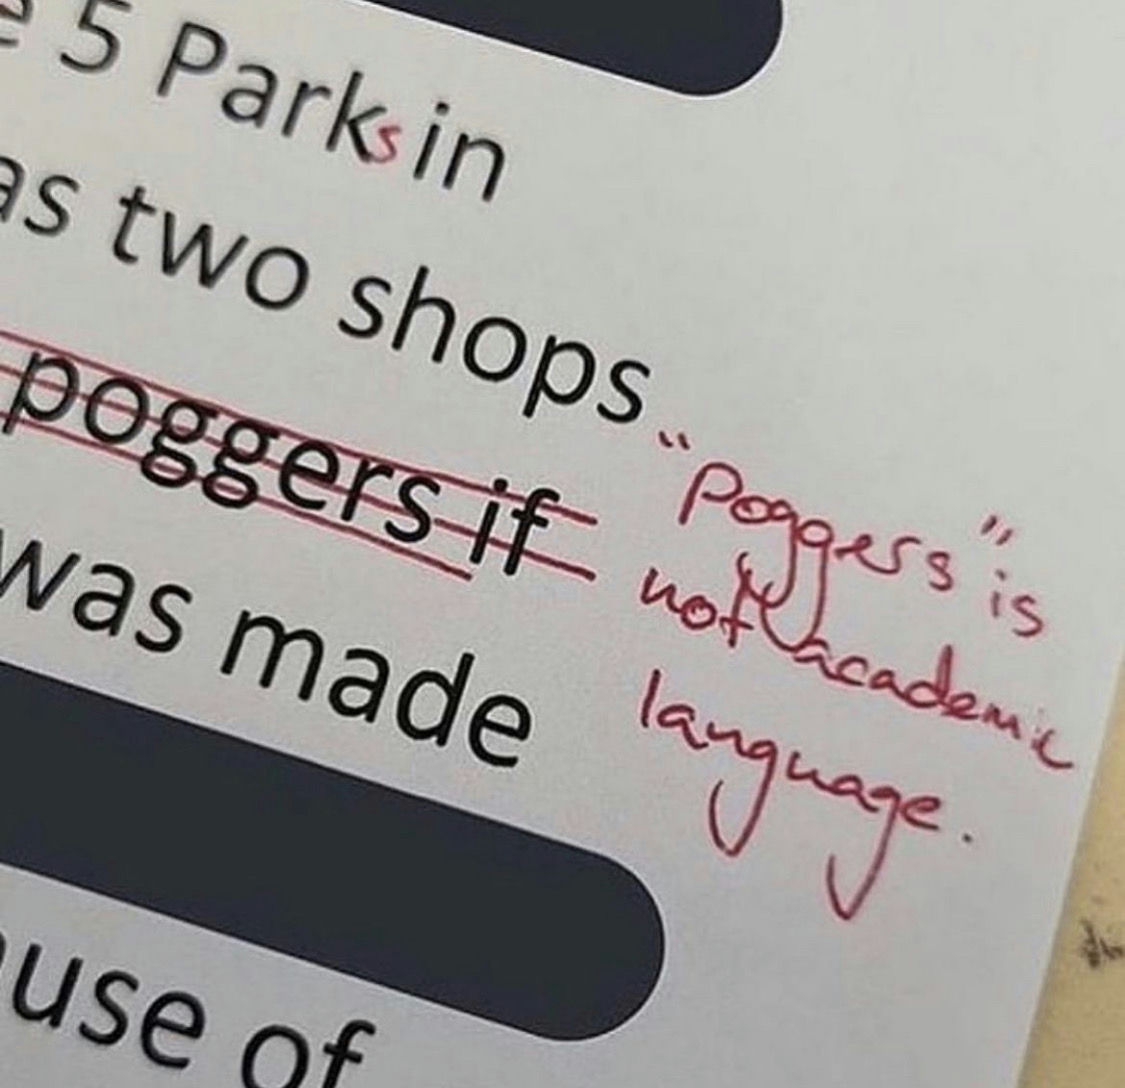 5 Parks in
as two shops
poggers if
"Poggers" is
not academic
language.
was made
use of